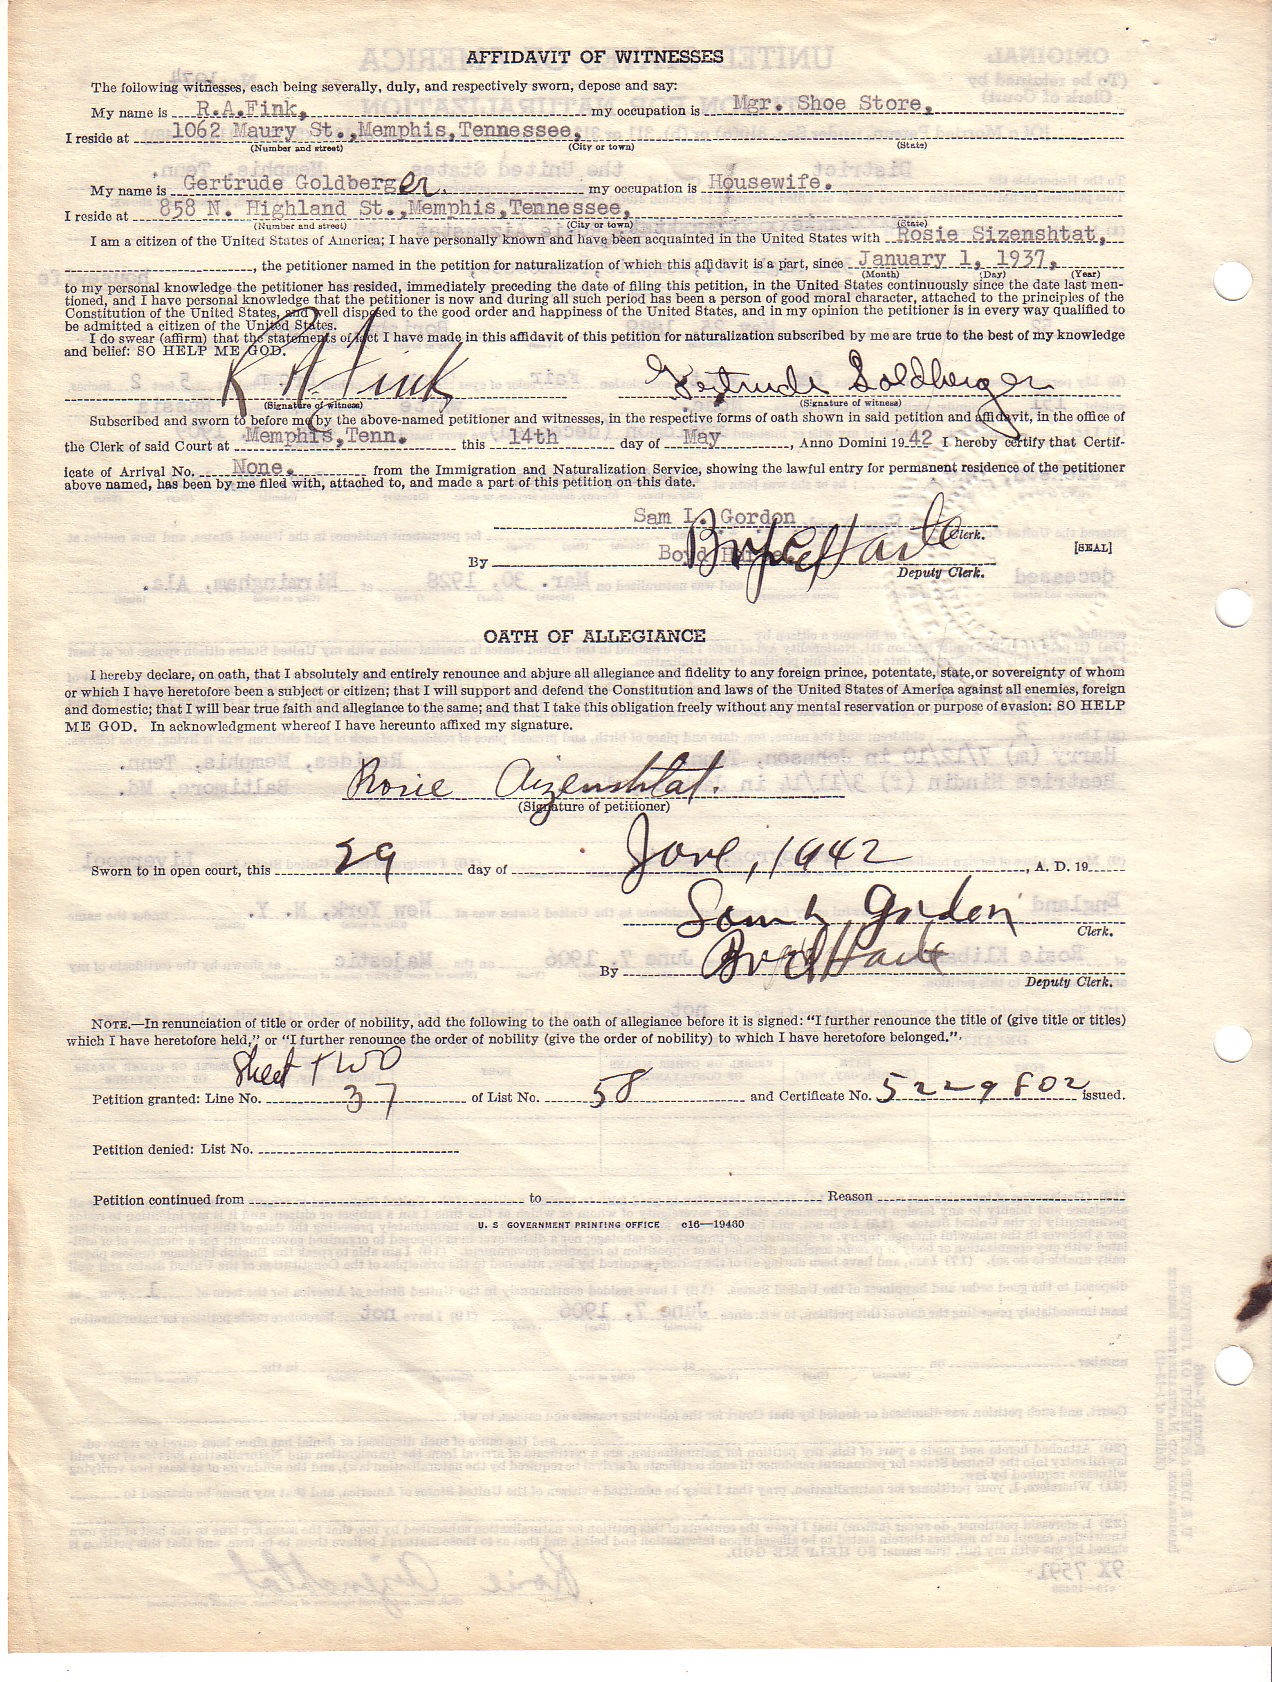 AFFIDAVIT OF WITNESSES
The following witnesses, each being severally, duly, and respectively sworn, depose and say:
My name is R.A.Fink, my occupation is Mgr. Shoe Store,
I reside at 1062 Maury St.,Memphis,Tennessee,
(Number and street) (City or town) (State)
My name is Gertrude Goldberger. my occupation is Housewife.
I reside at 858 N. Highland St.,Memphis,Tennessee,
(Number and street) (City or town) (State)
I am a citizen of the United States of America; I have personally known and have been acquainted in the United States with Rosie Sizenshtat,
, the petitioner named in the petition for naturalization of which this affidavit is a part, since January 1, 1937,
(Month) (Day) (Year)
to my personal knowledge the petitioner has resided, immediately preceding the date of filing this petition, in the United States continuously since the date last men-
tioned, and I have personal knowledge that the petitioner is now and during all such period has been a person of good moral character, attached to the principles of the
Constitution of the United States, and well disposed to the good order and happiness of the United States, and in my opinion the petitioner is in every way qualified to
be admitted a citizen of the United States.
I do swear (affirm) that the statements of fact I have made in this affidavit of this petition for naturalization subscribed by me are true to the best of my knowledge
and belief: SO HELP ME GOD.
R A Fink Gertrude Goldberger
(Signature of witness) (Signature of witness)
Subscribed and sworn to before me by the above-named petitioner and witnesses, in the respective forms of oath shown in said petition and affidavit, in the office of
the Clerk of said Court at Memphis,Tenn. this 14th day of May, Anno Domini 1942 I hereby certify that Certif-
icate of Arrival No. None. from the Immigration and Naturalization Service, showing the lawful entry for permanent residence of the petitioner
above named, has been by me filed with, attached to, and made a part of this petition on this date.
Sam L. Gordon
Clerk.
By Boyd [SEAL]
Deputy Clerk.
OATH OF ALLEGIANCE
I hereby declare, on oath, that I absolutely and entirely renounce and abjure all allegiance and fidelity to any foreign prince, potentate, state, or sovereignty of whom
or which I have heretofore been a subject or citizen; that I will support and defend the Constitution and laws of the United States of America against all enemies, foreign
and domestic; that I will bear true faith and allegiance to the same; and that I take this obligation freely without any mental reservation or purpose of evasion: SO HELP
ME GOD. In acknowledgment whereof I have hereunto affixed my signature.
Rosie Aizenshtat.
(Signature of petitioner)
Sworn to in open court, this 29 day of June, 1942, A. D. 19
Sam L Gordon
Clerk.
By Boyd
Deputy Clerk.
NOTE.—In renunciation of title or order of nobility, add the following to the oath of allegiance before it is signed: "I further renounce the title of (give title or titles)
which I have heretofore held," or "I further renounce the order of nobility (give the order of nobility) to which I have heretofore belonged."
Sheet two
Petition granted: Line No. 37 of List No. 58 and Certificate No. 5229802 issued.
Petition denied: List No.
Petition continued from to Reason
U. S GOVERNMENT PRINTING OFFICE c16—19460